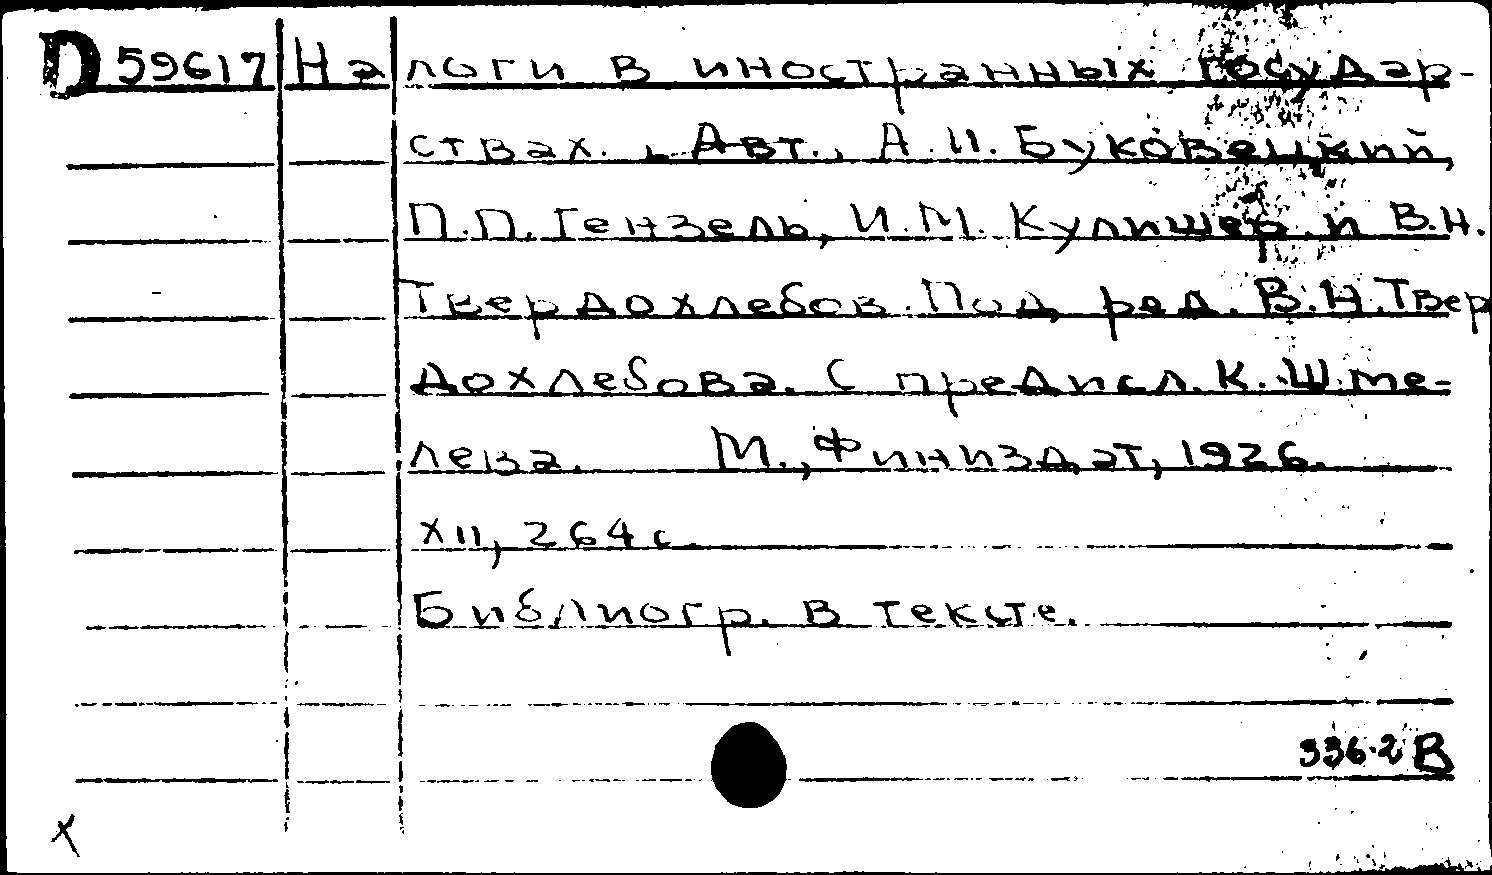 D 59617 Налоги в иностранных государ-
ствах. Авт., А.И. Буковецкий,
П.П. Гензель, И.М. Кулишер и В.Н.
Твердохлебов. Под ред. В.Н. Твер
дохлебова. С предисл. К. Шме-
лева. М., Финиздат, 1926.
XII, 264 с.
Библиогр. в тексте.
336.2 В
х